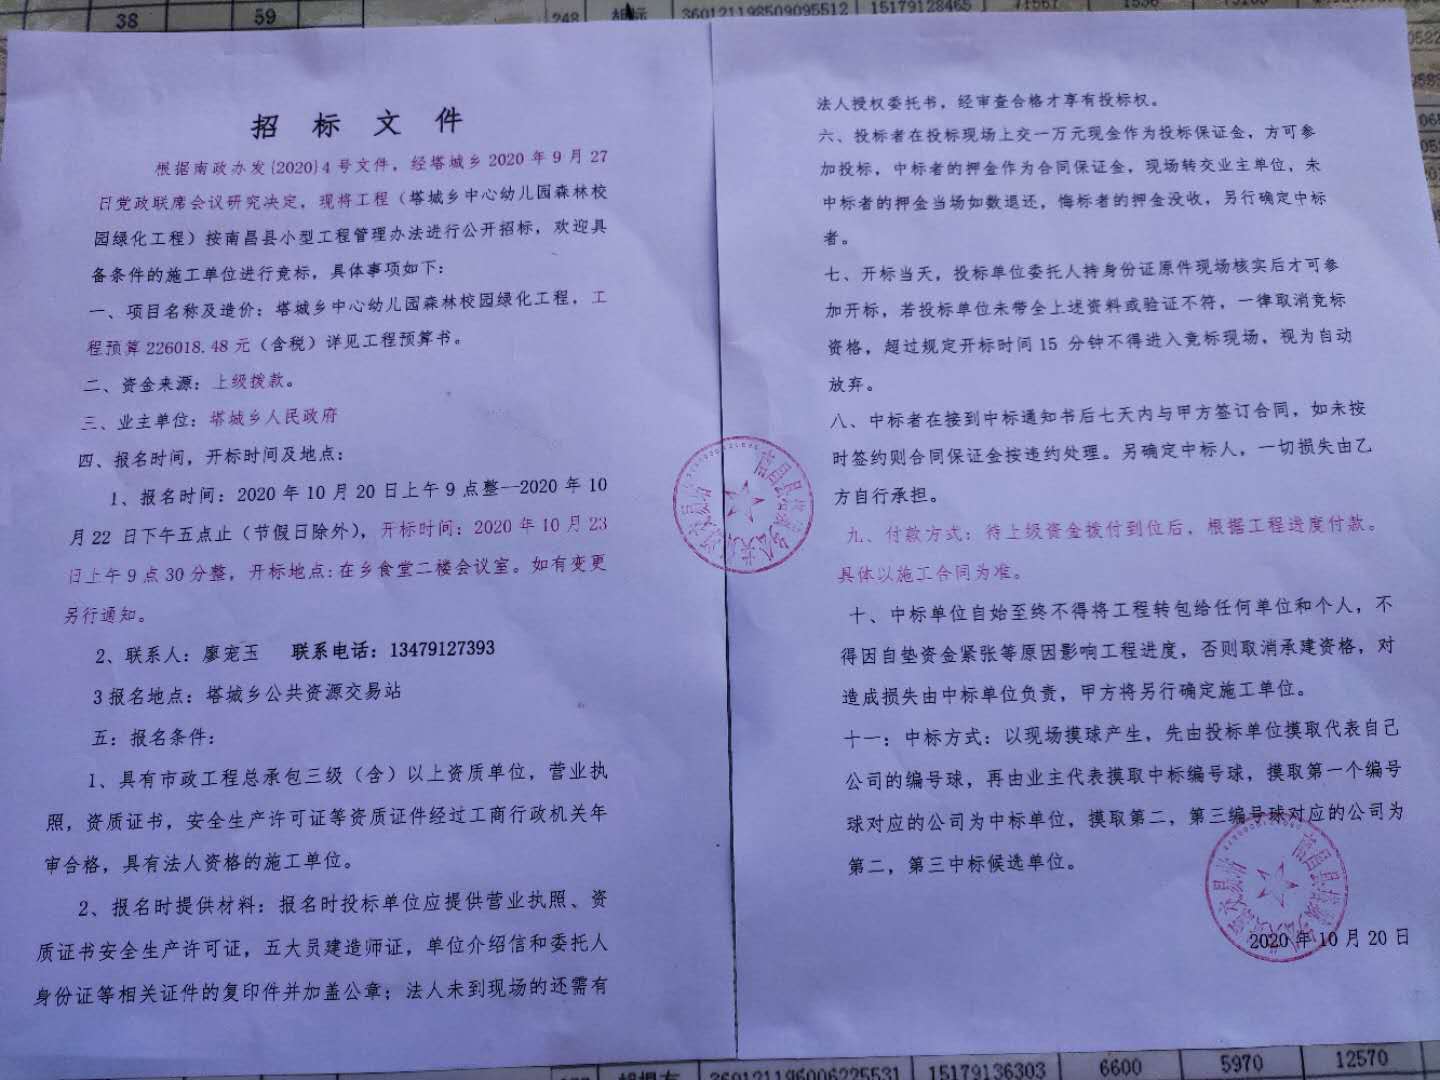 38
59
248 胡标 360121198509095512 15179128465
招标文件
根据南政办发{2020}4号文件，经塔城乡2020年9月27
日党政联席会议研究决定，现将工程（塔城乡中心幼儿园森林校
园绿化工程）按南昌县小型工程管理办法进行公开招标，欢迎具
备条件的施工单位进行竞标，具体事项如下：
一、项目名称及造价：塔城乡中心幼儿园森林校园绿化工程，工
程预算226018.48元（含税）详见工程预算书。
二、资金来源：上级拨款。
三、业主单位：塔城乡人民政府
四、报名时间，开标时间及地点：
1、报名时间：2020年10月20日上午9点整--2020年10
月22 日下午五点止（节假日除外），开标时间：2020年10月23
日上午9点30分整，开标地点:在乡食堂二楼会议室。如有变更
另行通知。
2、联系人：廖宠玉 联系电话：13479127393
3报名地点：塔城乡公共资源交易站
五：报名条件：
1、具有市政工程总承包三级（含）以上资质单位，营业执
照，资质证书，安全生产许可证等资质证件经过工商行政机关年
审合格，具有法人资格的施工单位。
2、报名时提供材料：报名时投标单位应提供营业执照、资
质证书安全生产许可证，五大员建造师证，单位介绍信和委托人
身份证等相关证件的复印件并加盖公章；法人未到现场的还需有
法人授权委托书，经审查合格才享有投标权。
六、投标者在投标现场上交一万元现金作为投标保证金，方可参
加投标，中标者的押金作为合同保证金，现场转交业主单位，未
中标者的押金当场如数退还，悔标者的押金没收，另行确定中标
者。
七、开标当天，投标单位委托人持身份证原件现场核实后才可参
加开标，若投标单位未带全上述资料或验证不符，一律取消竞标
资格，超过规定开标时间15 分钟不得进入竞标现场，视为自动
放弃。
八、中标者在接到中标通知书后七天内与甲方签订合同，如未按
时签约则合同保证金按违约处理。另确定中标人，一切损失由乙
方自行承担。
九、付款方式：待上级资金拨付到位后，根据工程进度付款。
具体以施工合同为准。
十、中标单位自始至终不得将工程转包给任何单位和个人，不
得因自垫资金紧张等原因影响工程进度，否则取消承建资格，对
造成损失由中标单位负责，甲方将另行确定施工单位。
十一：中标方式：以现场摸球产生，先由投标单位摸取代表自己
公司的编号球，再由业主代表摸取中标编号球，摸取第一个编号
球对应的公司为中标单位，摸取第二，第三编号球对应的公司为
第二，第三中标候选单位。
2020年10月20日
15179136303 6600 5970 12570